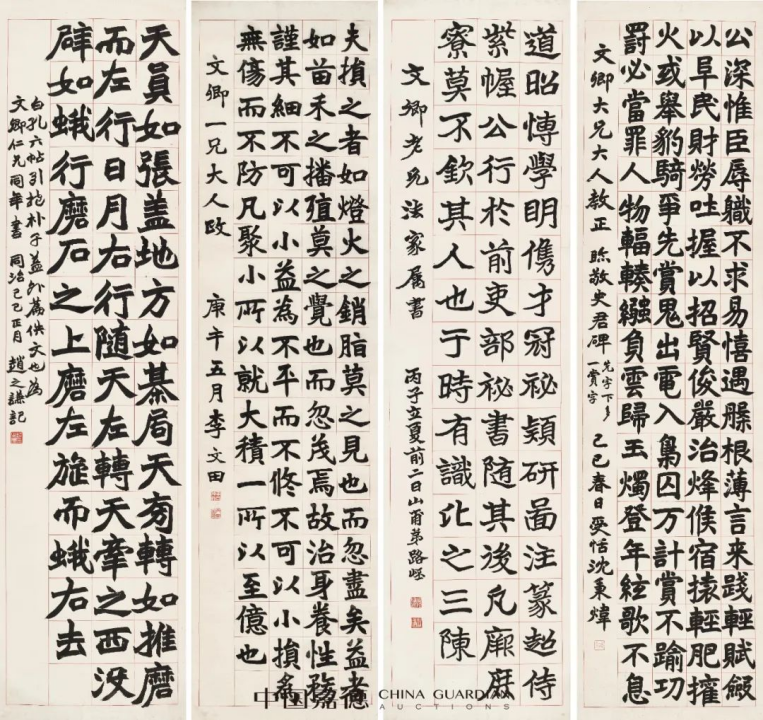 公深惟臣辱軄不求易憘遇臊根薄言来踐輕賦斂
以阜民財勞吐握以招賢俊嚴治烽候宿援輕肥擢
火或舉豹騎爭先賞鬼出電入梟囚万計賞不踰功
罰必當罪人物輻輳繦負雲歸玉燭登年絃歌不息
文卿大兄大人教正 臨敬史君碑 先字下多一賞字 己巳春日受恬沈秉煒
道昭博學明儁才冠祕穎研啚注篆超侍
紫幄公行於前吏部祕書随其後凡廊庭
寮莫不欽其人也于時有識比之三陳
文卿老兄法家属書
丙子立夏前二日山甫弟路
夫損之者如燈火之銷脂莫之見也而忽盡矣益者
如苗禾之播殖莫之覺也而忽茂焉故治身養性務
謹其細不可以小益為不平而不修不可以小損為
無傷而不防凡聚小所以就大積一所以至億也
文卿一兄大人政
庚午五月李文田
天員如張盖地方如棊局天旁轉如推磨
而左行日月右行随天左轉天牽之西没
辟如蛾行磨石之上磨左旋而蛾右去
白孔六帖引抱朴子盖外篇佚文也為
文卿仁兄同年書 同治己巳正月 趙之謙記
中国嘉德
CHINA GUARDIAN
AUCTIONS